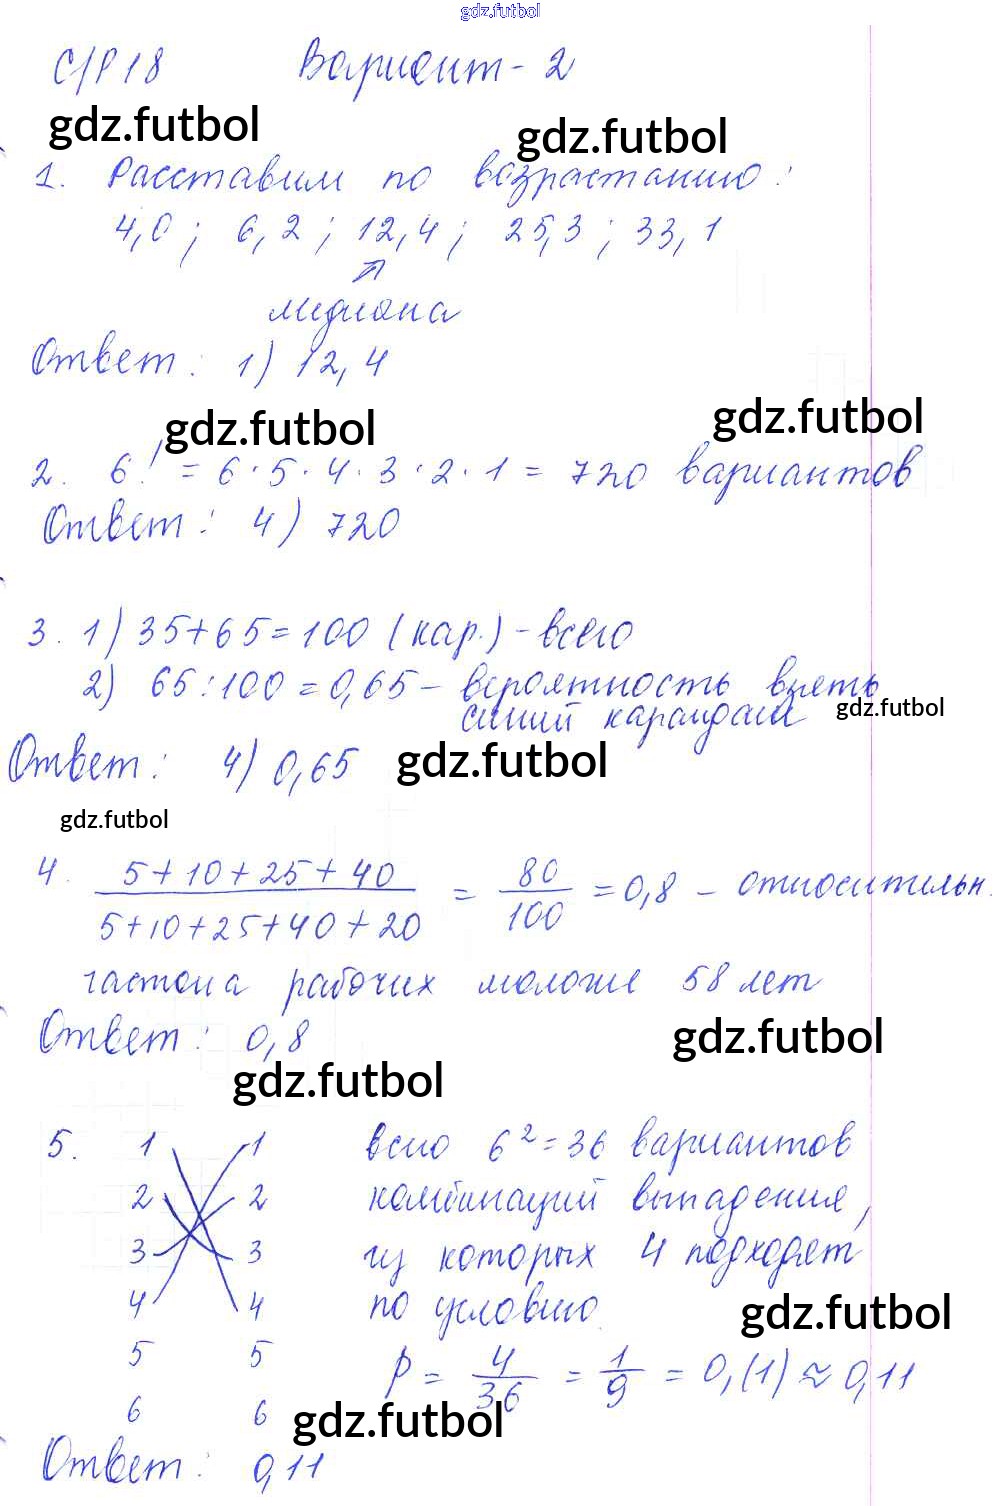 gdz.futbol
С/Р 18 Вариант-2
gdz.futbol gdz.futbol
1. Расставим по возрастанию:
4,0; 6,2; 12,4; 25,3; 33,1
медиана
Ответ: 1) 12,4
gdz.futbol gdz.futbol
2. 6! = 6·5·4·3·2·1 = 720 вариантов
Ответ: 4) 720
3. 1) 35+65=100 (кар.) - всего
2) 65:100=0,65 - вероятность взять
синий карандаш gdz.futbol
Ответ: 4) 0,65 gdz.futbol
gdz.futbol
4. (5+10+25+40)/(5+10+25+40+20) = 80/100 = 0,8 - относительн.
частота рабочих моложе 58 лет
Ответ: 0,8 gdz.futbol
gdz.futbol
5. 1 1 всего 6² = 36 вариантов
2 2 комбинаций выпадения,
3 3 из которых 4 подходят
4 4 по условию. gdz.futbol
5 5 P = 4/36 = 1/9 = 0,(1) ≈ 0,11
6 6 gdz.futbol
Ответ: 0,11